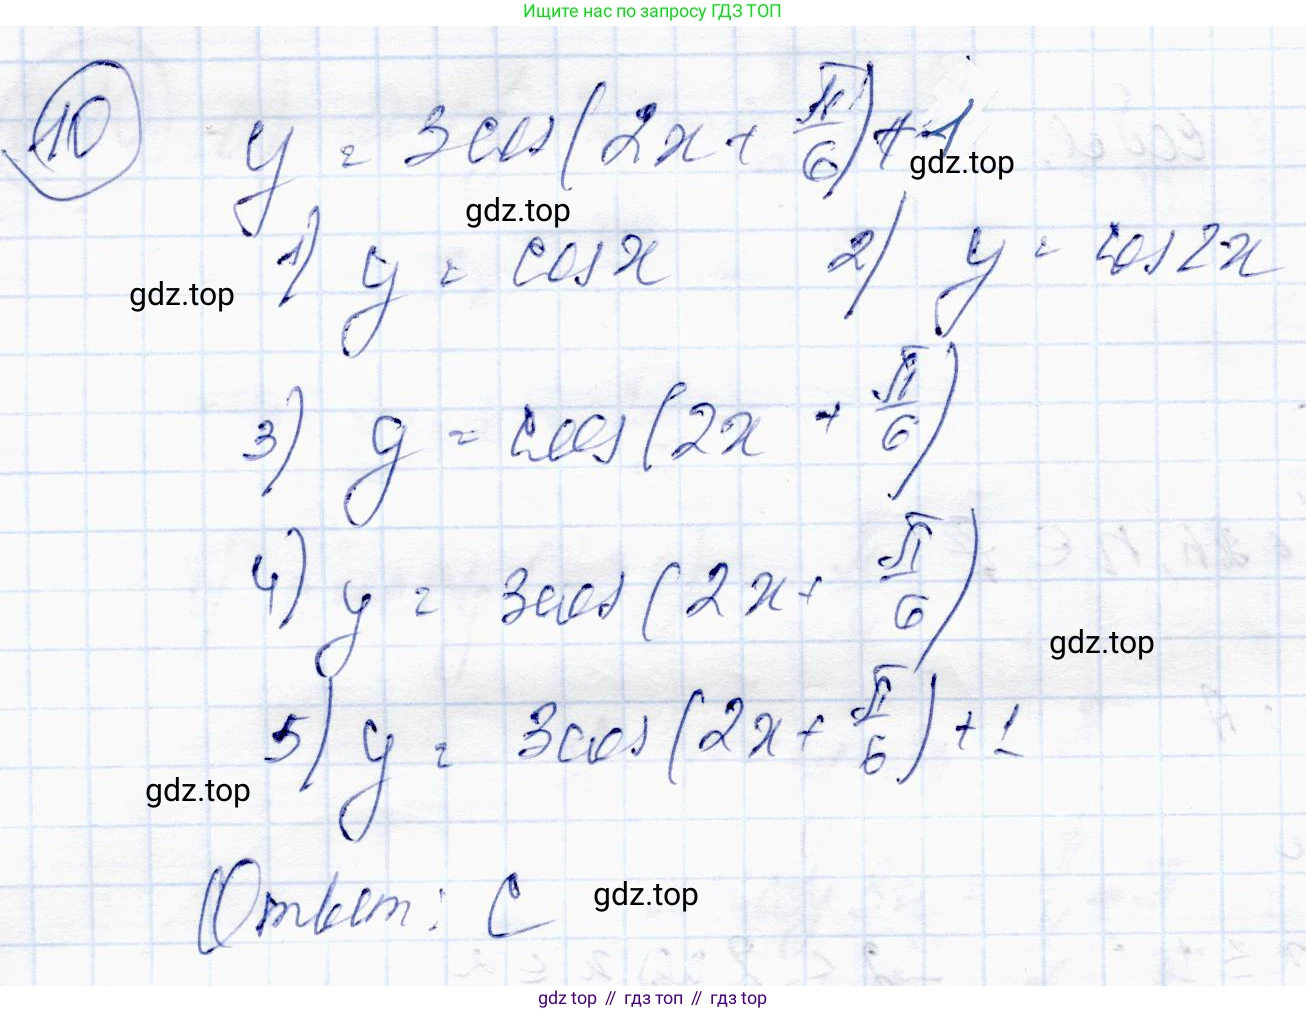 Ищите нас по запросу ГДЗ ТОП
10 y = 3cos(2x + π/6) + 1
gdz.top
gdz.top
1) y = cosx 2) y = cos2x
gdz.top
3) y = cos(2x + π/6)
4) y = 3cos(2x + π/6)
gdz.top
5) y = 3cos(2x + π/6) + 1
gdz.top
Ответ: C
gdz.top
gdz top // гдз топ // гдз top